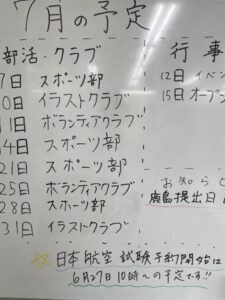 7月の予定
部活・クラブ
7日 スポーツ部
0日 イラストクラブ
1日 ボランティアクラブ
4日 スポーツ部
21日 スポーツ部
25日 ボランティアクラブ
28日 スポーツ部
31日 イラストクラブ
行事
12日 イベン
15日 オープン
お知らせ
提出日
☆日本航空 試験予約開始は
6月27日10時〜の予定です!!